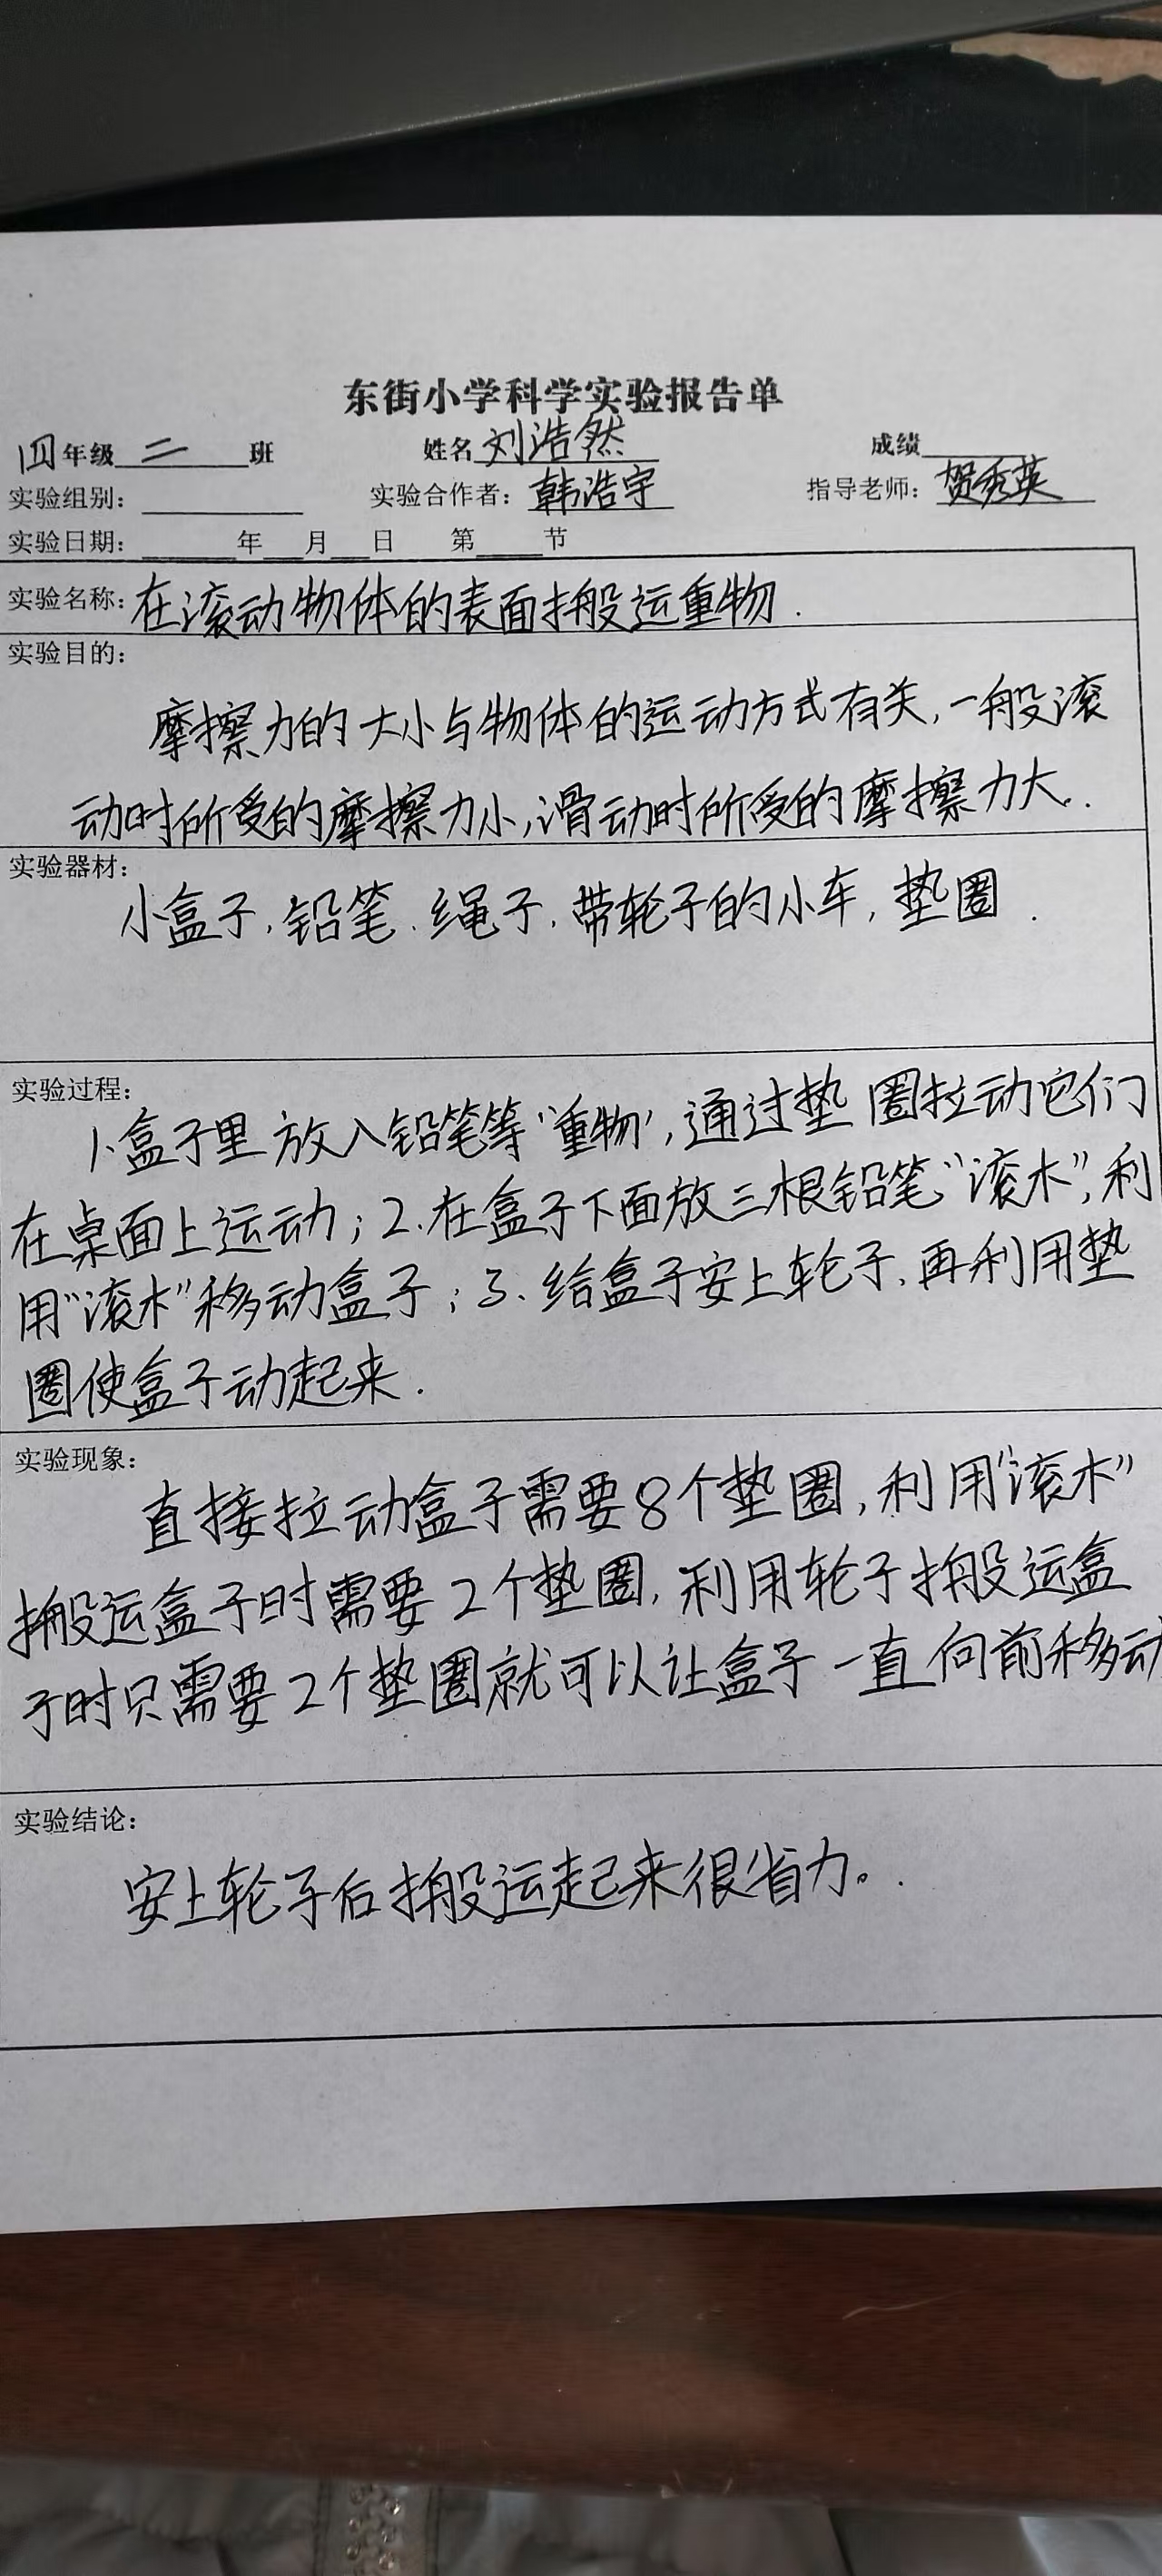 东街小学科学实验报告单
四年级 二 班 姓名 刘浩然 成绩
实验组别： 实验合作者：韩浩宇 指导老师：贺秀英
实验日期： 年 月 日 第 节
实验名称：在滚动物体的表面搬运重物.
实验目的：
摩擦力的大小与物体的运动方式有关,一般滚
动时所受的摩擦力小,滑动时所受的摩擦力大.
实验器材：
小盒子,铅笔.绳子,带轮子的小车,垫圈.
实验过程：
1.盒子里放入铅笔等“重物”,通过垫圈拉动它们
在桌面上运动;2.在盒子下面放三根铅笔“滚木”,利
用“滚木”移动盒子;3、给盒子安上轮子,再利用垫
圈使盒子动起来.
实验现象：
直接拉动盒子需要8个垫圈,利用“滚木”
搬运盒子时需要2个垫圈,利用轮子搬运盒
子时只需要2个垫圈就可以让盒子一直向前移动
实验结论：
安上轮子后搬运起来很省力。